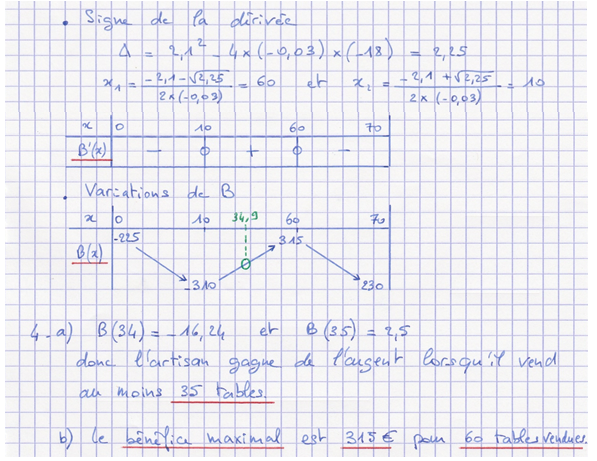 • Signe de la dérivée
Δ = 2,1² - 4 × (-0,03) × (-18) = 2,25
x₁ = (-2,1 - √2,25) / (2 × (-0,03)) = 60 et x₂ = (-2,1 + √2,25) / (2 × (-0,03)) = 10
x 0 10 60 70
B'(x) - 0 + 0 -
• Variations de B
x 0 10 34,9 60 70
-225 315
B(x) 0
-310 230
4-a) B(34) = -16,24 et B(35) = 2,5
donc l'artisan gagne de l'argent lorsqu'il vend
au moins 35 tables.
b) le bénéfice maximal est 315€ pour 60 tables vendues.